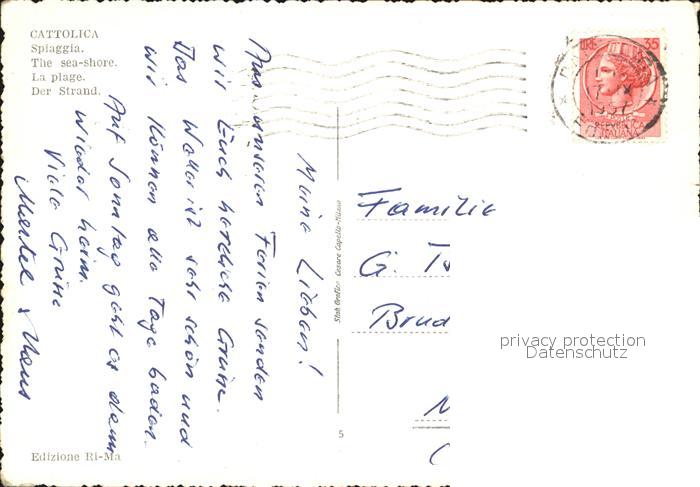 CATTOLICA
Spiaggia.
The sea-shore.
La plage.
Der Strand.
Meine Lieben!
Aus unseren Ferien senden
wir Euch herzliche Grüsse.
Das Wetter ist sehr schön und
wir können alle Tage baden.
Auf Sonntag geht es dann
wieder heim.
Viele Grüsse
LIRE 35
1957
REPVBBLICA
ITALIANA
Familie
G.
Brud
privacy protection
Datenschutz
5
Edizione Ri-Ma